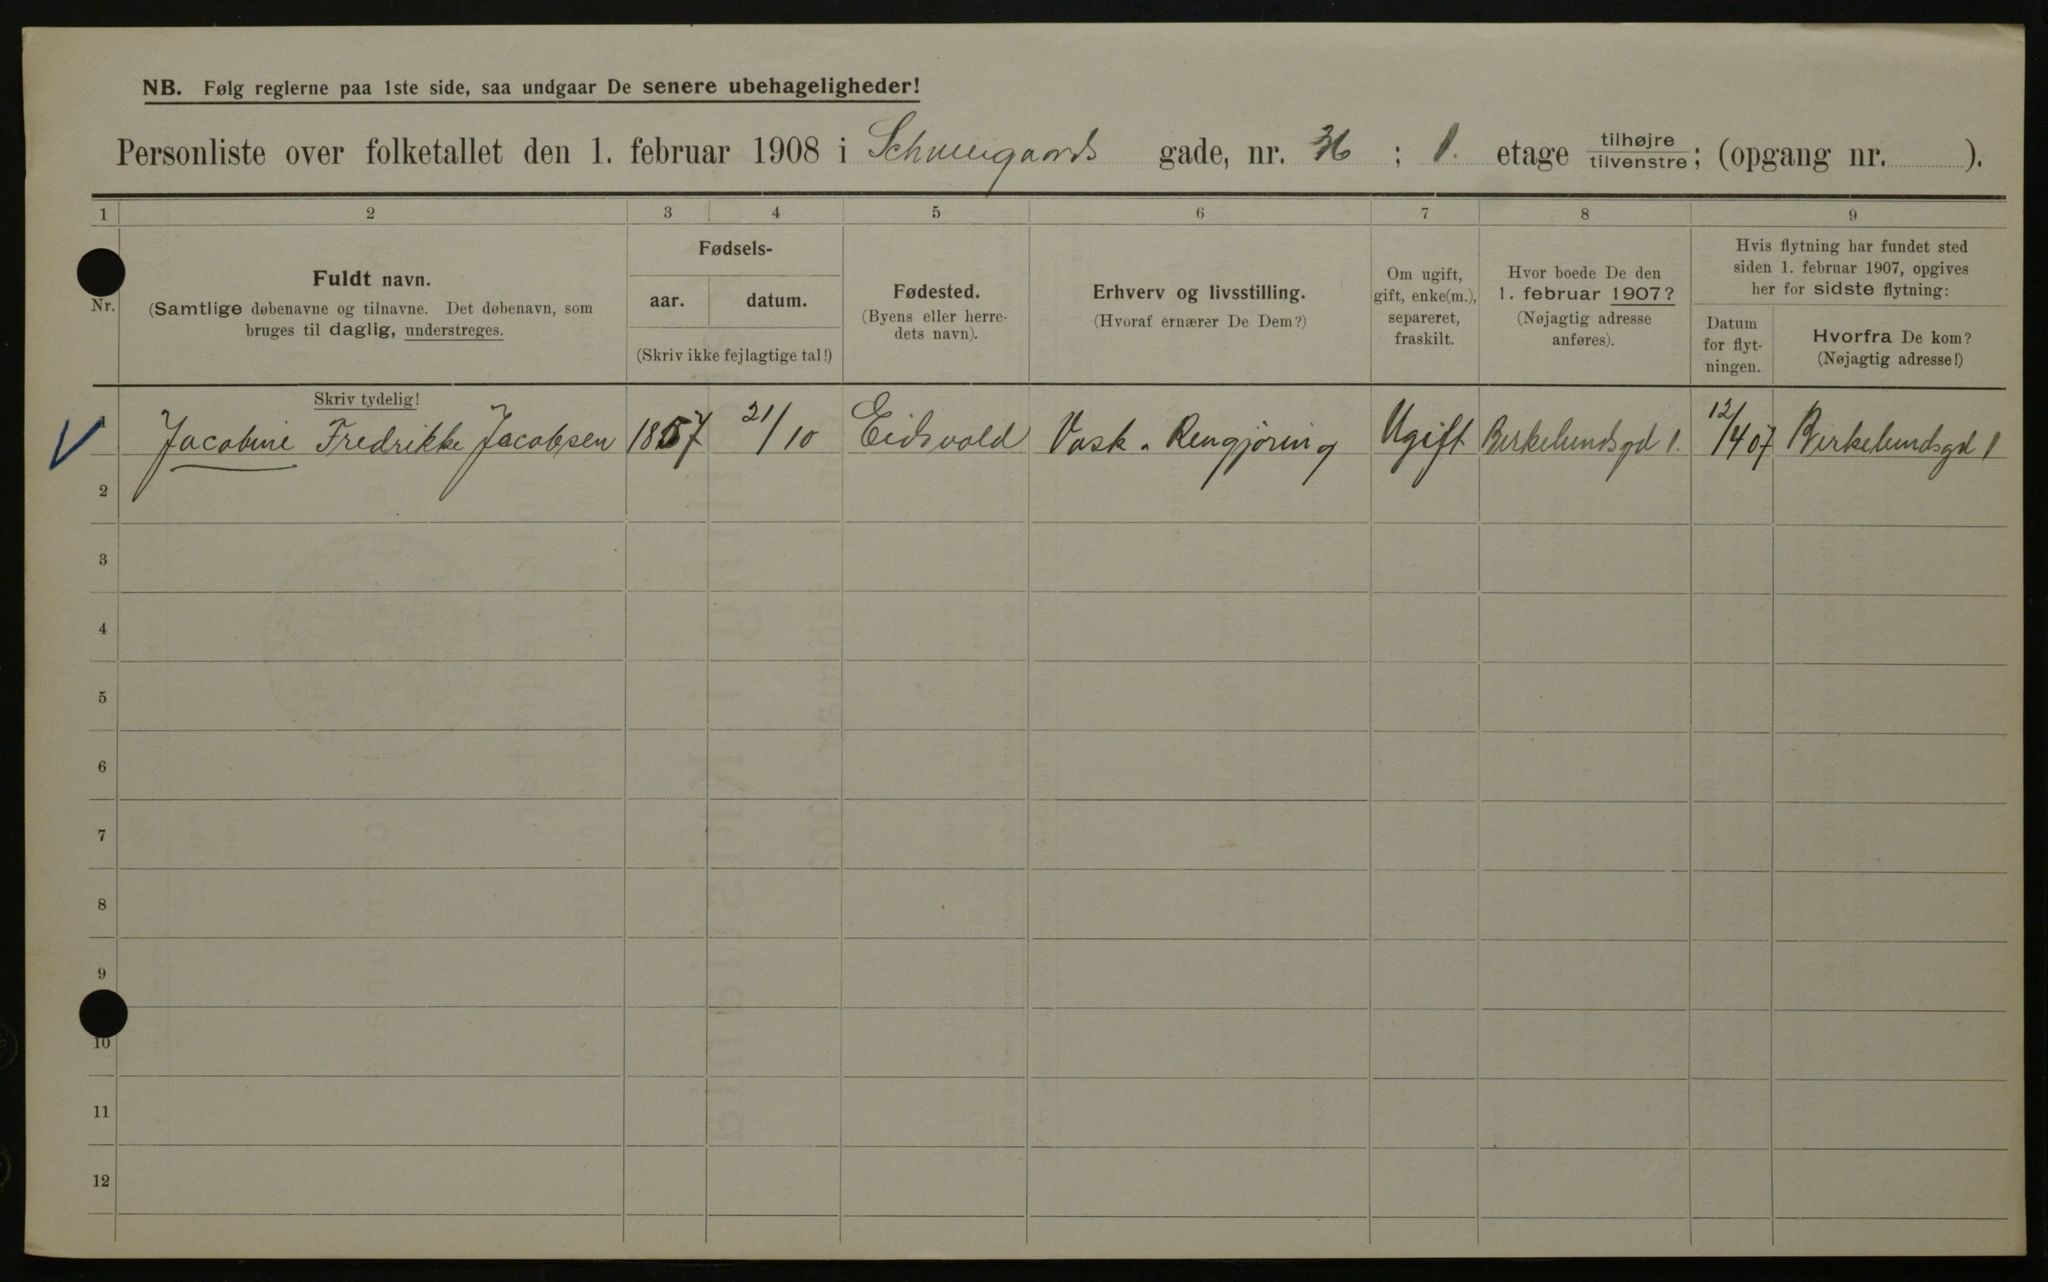 NB. Følg reglerne paa 1ste side, saa undgaar De senere ubehageligheder!
Personliste over folketallet den 1. februar 1908 i Schweigaards gade, nr. 36 ; 1. etage tilhøjre tilvenstre; (opgang nr. ).
1 2 3 4 5 6 7 8 9
Nr.
Fuldt navn.
(Samtlige døbenavne og tilnavne. Det døbenavn, som
bruges til daglig, understreges.
Skriv tydelig!
Fødsels-
aar. datum.
(Skriv ikke fejlagtige tal!)
Fødested.
(Byens eller herre-
dets navn).
Erhverv og livsstilling.
(Hvoraf ernærer De Dem?)
Om ugift,
gift, enke(m.),
separeret,
fraskilt.
Hvor boede De den
1. februar 1907?
(Nøjagtig adresse
anføres).
Hvis flytning har fundet sted
siden 1. februar 1907, opgives
her for sidste flytning:
Datum
for flyt-
ningen.
Hvorfra De kom?
(Nøjagtig adresse!)
1 Jacobine Fredrikke Jacobsen 1857 21/10 Eidsvold Vask. Rengjöring Ugift Birkelundsgd 1. 12/4 07 Birkelundsgd 1
2
3
4
5
6
7
8
9
10
11
12